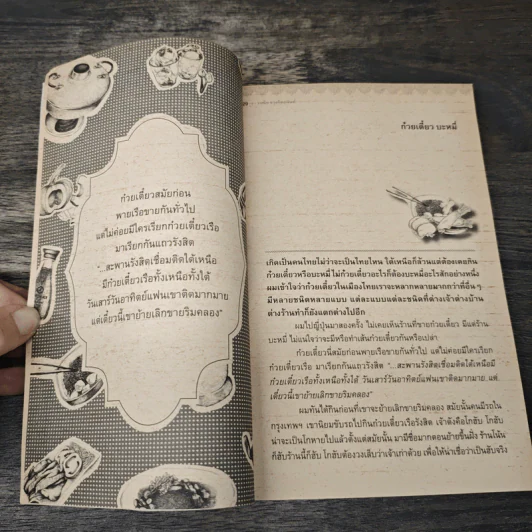 ก๋วยเตี๋ยวสมัยก่อน
พายเรือขายกันทั่วไป
แต่ไม่ค่อยมีใครเรียกก๋วยเตี๋ยวเรือ
มาเรียกกันแถวรังสิต
"...สะพานรังสิตเชื่อมติดใต้เหนือ
มีก๋วยเตี๋ยวเรือทั้งเหนือทั้งใต้
วันเสาร์วันอาทิตย์แฟนเขาติดมากมาย
แต่เดี๋ยวนี้เขาย้ายเลิกขายริมคลอง"
ก๋วยเตี๋ยว บะหมี่
เกิดเป็นคนไทยไม่ว่าจะเป็นไทยไหน ใต้เหนือก็ล้วนแต่ต้องเคยกิน
ก๋วยเตี๋ยวหรือบะหมี่ ไม่ก๋วยเตี๋ยวอะไรก็ต้องบะหมี่อะไรสักอย่างหนึ่ง
ผมเข้าใจว่าก๋วยเตี๋ยวในเมืองไทยเราจะหลากหลายมากกว่าที่อื่น ๆ
มีหลายชนิดหลายแบบ แต่ละแบบแต่ละชนิดที่ต่างเจ้าต่างบ้าน
ต่างร้านทำก็ยังแตกต่างไปอีก
ผมไปญี่ปุ่นมาสองครั้ง ไม่เคยเห็นร้านที่ขายก๋วยเตี๋ยว มีแต่ร้าน
บะหมี่ ไม่แน่ใจว่าจะมีหรือทำเส้นก๋วยเตี๋ยวกันหรือเปล่า
ก๋วยเตี๋ยวนี่สมัยก่อนพายเรือขายกันทั่วไป แต่ไม่ค่อยมีใครเรียก
ก๋วยเตี๋ยวเรือ มาเรียกกันแถวรังสิต "...สะพานรังสิตเชื่อมติดใต้เหนือมี
ก๋วยเตี๋ยวเรือทั้งเหนือทั้งใต้ วันเสาร์วันอาทิตย์แฟนเขาติดมากมาย แต่
เดี๋ยวนี้เขาย้ายเลิกขายริมคลอง"
ผมทันได้กินก่อนที่เขาจะย้ายเลิกขายริมคลอง สมัยนั้นคนมีรถใน
กรุงเทพฯ เขานิยมขับรถไปกินก๋วยเตี๋ยวเรือรังสิต เจ้าดังคือโกฮับ โกฮับ
น่าจะเป็นโกหายไปแล้วตั้งแต่สมัยนั้น มามีชื่อมากตอนย้ายขึ้นฝั่ง ร้านโน้น
ก็ฮับร้านนี้ก็ฮับ โกฮับต้องวงเล็บว่าเจ้าเก่าด้วย เพื่อให้น่าเชื่อว่าเป็นฮับจริง